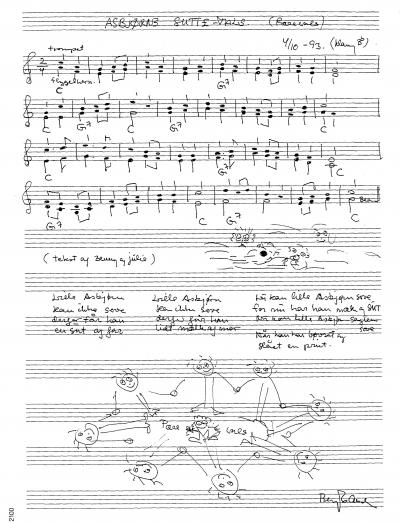 ASBJØRNS SUTTE-VALS (Barcarole)
trumpet
4/10 -93.
flygelhorn.
C G7 C
C G7
C G7 C
C G7 C G7 C
(tekst af Benny og Julie)
Lille Asbjørn
kan ikke sove
derfor får han
en SUT af far
Lille Asbjørn
kan ikke sove
derfor får han
lidt mælk af mor
Nu kan lille Asbjørn sove
for nu har han mælk og SUT
Nu kan lille Asbjørn
sove
når han har bøvset og
slået en prut.
2100